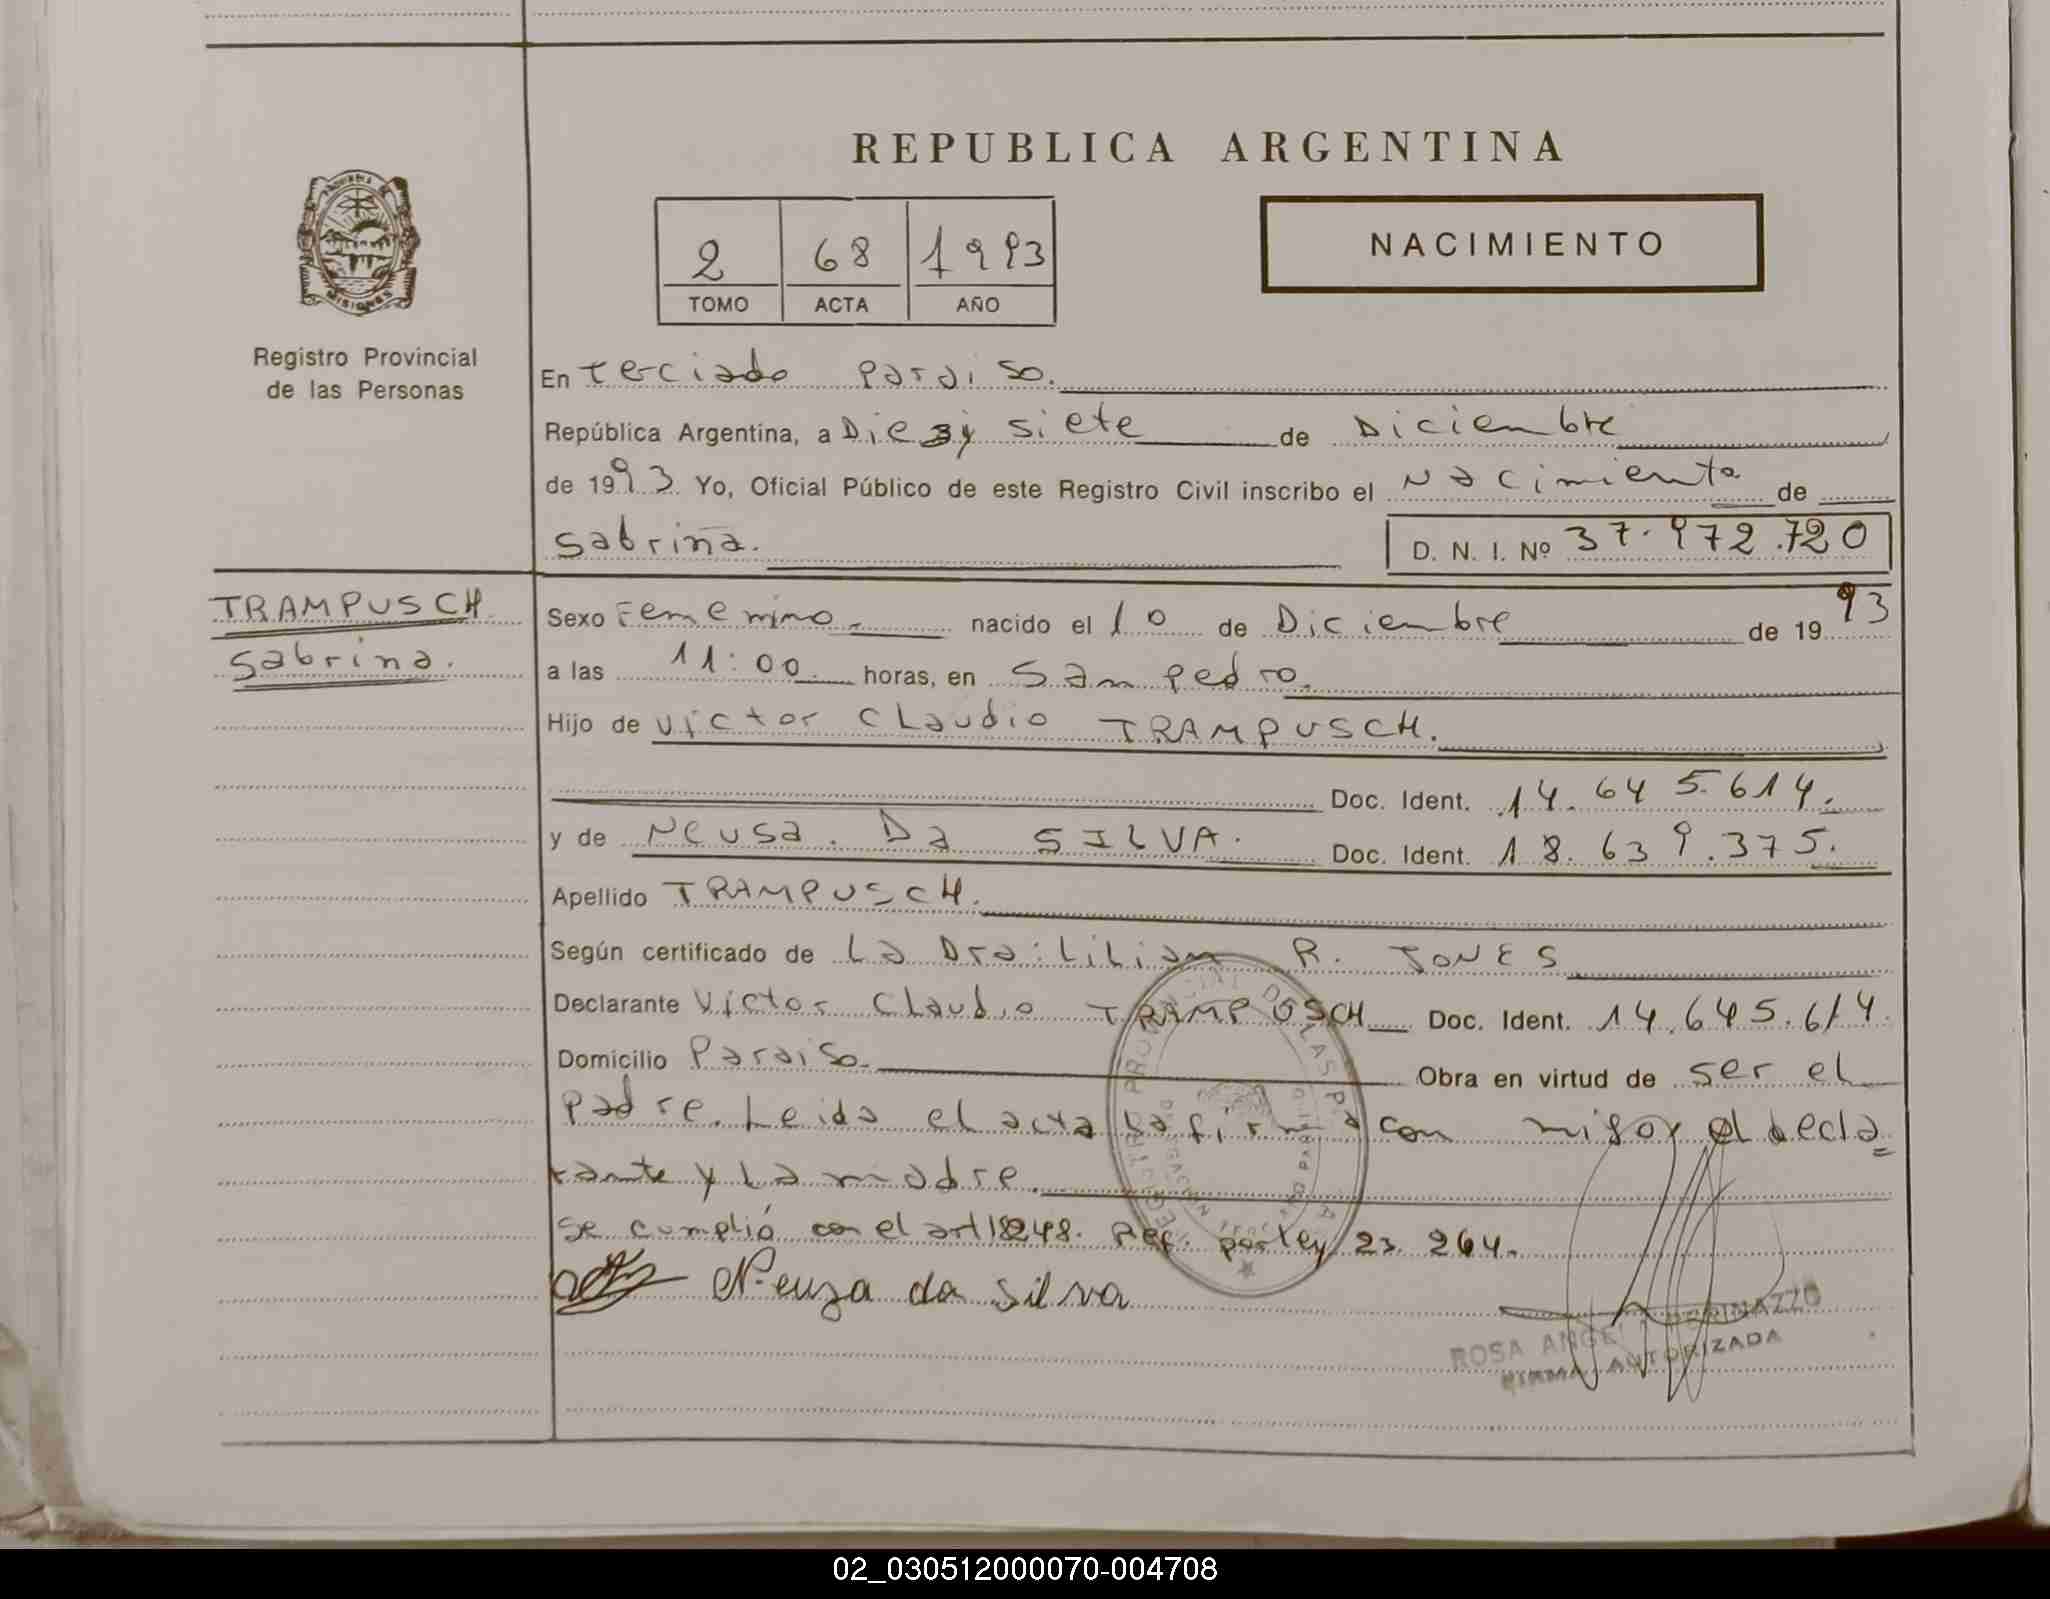 REPUBLICA ARGENTINA
PROVINCIA DE
MISIONES
Registro Provincial
de las Personas
2 68 1993
TOMO ACTA AÑO
NACIMIENTO
En Terciado Paraiso.
República Argentina, a Diez y siete de Diciembre
de 1993 Yo, Oficial Público de este Registro Civil inscribo el Nacimiento de
Sabrina.
D. N. I. Nº 37.972.720
TRAMPUSCH
Sabrina.
Sexo Femenino. nacido el 10 de Diciembre de 1993
a las 11:00 horas, en San Pedro.
Hijo de Victor Claudio TRAMPUSCH.
Doc. Ident. 14.645.614.
y de Neusa. Da SILVA. Doc. Ident. 18.639.375.
Apellido TRAMPUSCH.
Según certificado de La Dra: Lilian R. JONES
Declarante Victor Claudio TRAMPUSCH Doc. Ident. 14.645.614.
Domicilio Paraiso. Obra en virtud de ser el
Padre. Leida el acta la firma con migo y el decla
rante y La madre.
Se cumplió con el art 18248. Ref. por ley 23 264.
Neuza da Silva
ROSA PERINAZZO
AUTORIZADA
02_030512000070-004708